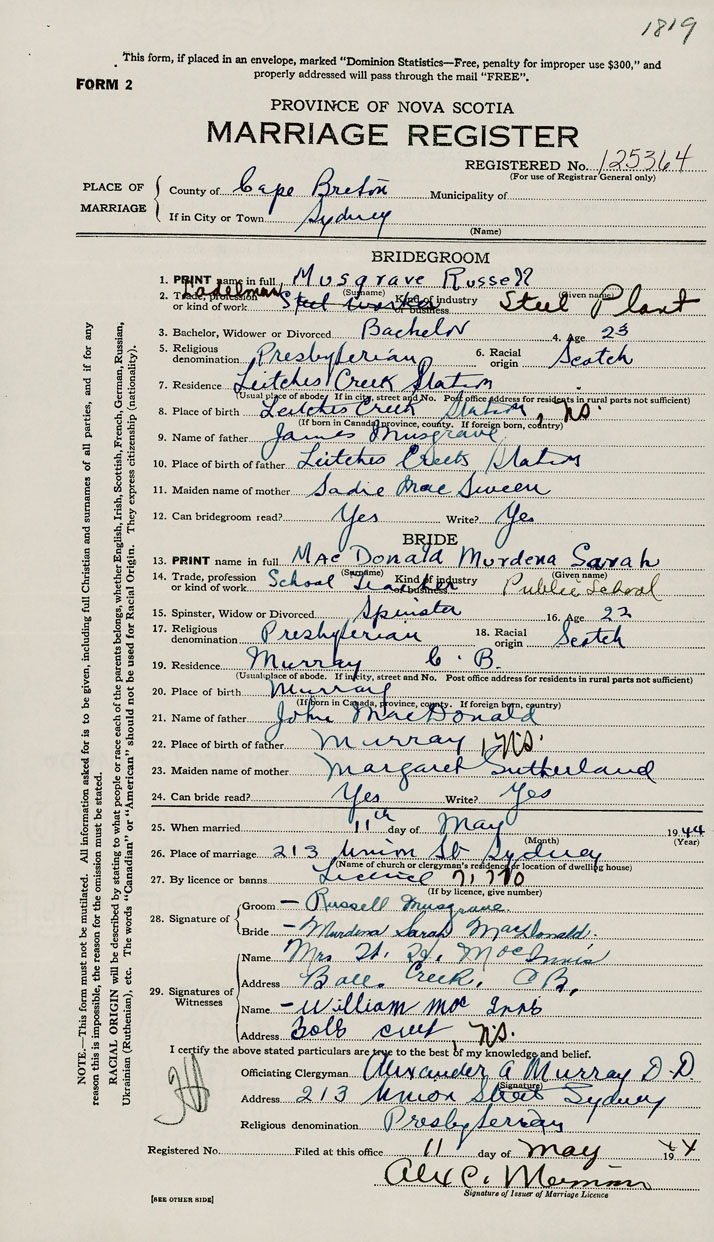 1819
This form, if placed in an envelope, marked "Dominion Statistics—Free, penalty for improper use $300," and
properly addressed will pass through the mail "FREE".
FORM 2
PROVINCE OF NOVA SCOTIA
MARRIAGE REGISTER
REGISTERED No. 125364
(For use of Registrar General only)
PLACE OF MARRIAGE
County of Cape Breton Municipality of
If in City or Town Sydney
(Name)
BRIDEGROOM
1. PRINT name in full Musgrave Russell
(Surname) (Given name)
2. Trade, profession or kind of work Ladelman Steel worker Kind of industry or business Steel Plant
3. Bachelor, Widower or Divorced Bachelor 4. Age 23
5. Religious denomination Presbyterian 6. Racial origin Scotch
7. Residence Leitches Creek Station
(Usual place of abode. If in city, street and No. Post office address for residents in rural parts not sufficient)
8. Place of birth Leitches Creek Station, N.S.
(If born in Canada, province, county. If foreign born, country)
9. Name of father James Musgrave
10. Place of birth of father Leitches Creek Station
11. Maiden name of mother Sadie MacSween
12. Can bridegroom read? Yes Write? Yes
BRIDE
13. PRINT name in full MacDonald Murdena Sarah
(Surname) (Given name)
14. Trade, profession or kind of work School Teacher Kind of industry or business Public School
15. Spinster, Widow or Divorced Spinster 16. Age 22
17. Religious denomination Presbyterian 18. Racial origin Scotch
19. Residence Murray C. B.
(Usual place of abode. If in city, street and No. Post office address for residents in rural parts not sufficient)
20. Place of birth Murray
(If born in Canada, province, county. If foreign born, country)
21. Name of father John MacDonald
22. Place of birth of father Murray, N.S.
23. Maiden name of mother Margaret Sutherland
24. Can bride read? Yes Write? Yes
25. When married 11th day of May 1944
(Month) (Year)
26. Place of marriage 213 Union St Sydney
(Name of church or clergyman's residence or location of dwelling house)
27. By licence or banns Licence 71,770
(If by licence, give number)
28. Signature of
Groom — Russell Musgrave.
Bride — Murdena Sarah MacDonald.
29. Signatures of Witnesses
Name Mrs. MacInnis
Address Creek, C.B.
Name — William Mac Innis
Address N.S.
I certify the above stated particulars are true to the best of my knowledge and belief.
Officiating Clergyman Alexander A Murray D.D.
(Signature)
Address 213 Union Street Sydney
Religious denomination Presbyterian
Registered No. Filed at this office 11 day of May 1944
Alex C.
Signature of Issuer of Marriage Licence
[SEE OTHER SIDE]
NOTE.—This form must not be mutilated. All information asked for is to be given, including full Christian and surnames of all parties, and if for any
reason this is impossible, the reason for the omission must be stated.
RACIAL ORIGIN will be described by stating to what people or race each of the parents belongs, whether English, Irish, Scottish, French, German, Russian,
Ukrainian (Ruthenian), etc. The words "Canadian" or "American" should not be used for Racial Origin. They express citizenship (nationality).